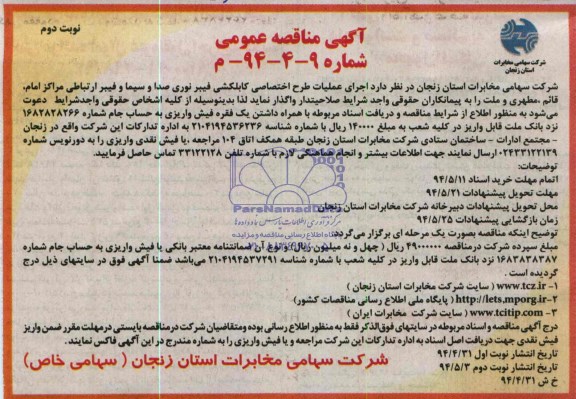 نوبت دوم
آگهی مناقصه عمومی
شماره ۹-۴-۹۴- م
شرکت سهامی مخابرات
استان زنجان
شرکت سهامی مخابرات استان زنجان در نظر دارد اجرای عملیات طرح اختصاصی کابلکشی فیبر نوری صدا و سیما و فیبر ارتباطی مراکز امام،
قائم ،مطهری و ملت را به پیمانکاران حقوقی واجد شرایط صلاحیتدار واگذار نماید لذا بدینوسیله از کلیه اشخاص حقوقی واجدشرایط دعوت
می‌شود به منظور اطلاع از شرایط مناقصه و دریافت اسناد مربوطه با همراه داشتن یک فقره فیش واریزی به حساب جام شماره ۱۶۸۲۸۲۸۲۶۶
نزد بانک ملت قابل واریز در کلیه شعب به مبلغ ۱۴۰۰۰۰ ریال با شماره شناسه ۲۱۰۴۱۹۴۵۳۶۲۳۶ به اداره تدارکات این شرکت واقع در زنجان
- مجتمع ادارات - ساختمان ستادی شرکت مخابرات استان زنجان طبقه همکف اتاق ۱۰۴ مراجعه ،یا فیش نقدی واریزی را به دورنویس شماره
۰۲۴۳۳۱۲۲۱۳۹ ارسال نمایند جهت اطلاعات بیشتر و انجام هماهنگی لازم با شماره تلفن ۳۳۱۲۲۱۲۸ تماس حاصل فرمایید.
توضیحات:
اتمام مهلت خرید اسناد ۹۴/۵/۱۱
مهلت تحویل پیشنهادات ۹۴/۵/۲۱
محل تحویل پیشنهادات دبیرخانه شرکت مخابرات استان زنجان
زمان بازگشایی پیشنهادات ۹۴/۵/۲۵
توضیح اینکه مناقصه بصورت یک مرحله ای برگزار می‌گردد.
مبلغ سپرده شرکت درمناقصه ۴۹۰۰۰۰۰۰ ریال ( چهل و نه میلیون ریال) و نوع آن ضمانتنامه معتبر بانکی یا فیش واریزی به حساب جام شماره
۱۶۸۳۸۳۸۳۸۷ نزد بانک ملت قابل واریز در کلیه شعب با شماره شناسه ۲۱۰۴۱۹۴۵۳۷۲۹۱ می‌باشد ضمنا آگهی فوق در سایتهای ذیل درج
گردیده است .
۱- www.tcz.ir ( سایت شرکت مخابرات استان زنجان )
۲-http://iets.mporg.ir ( پایگاه ملی اطلاع رسانی مناقصات کشور)
۳- www.tcitip.com ( سایت شرکت مخابرات ایران )
درج آگهی مناقصه و اسناد مربوطه در سایتهای فوق‌الذکر فقط به منظور اطلاع رسانی بوده ومتقاضیان شرکت درمناقصه بایستی درمهلت مقرر ضمن واریز
فیش نقدی جهت دریافت اصل اسناد به اداره تدارکات این شرکت مراجعه و یا فیش واریزی را به شماره مندرج در این آگهی فاکس نمایند.
تاریخ انتشار نوبت اول ۹۴/۴/۳۱
تاریخ انتشار نوبت دوم ۹۴/۵/۳
خ ش ۹۴/۴/۳۱
شرکت سهامی مخابرات استان زنجان ( سهامی خاص)
ParsNamadData